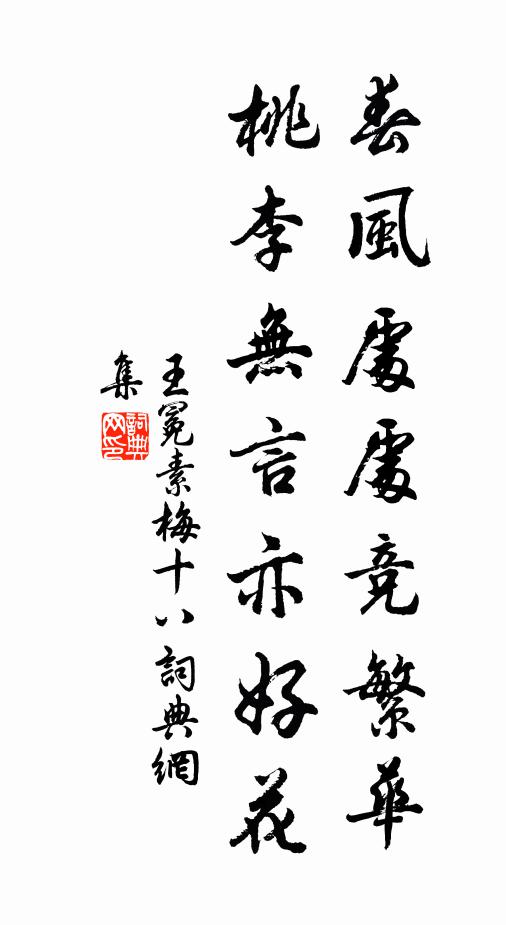 春風處處競繁華
桃李無言亦好花
王冕素梅十八詞典網
集
詞典
網印